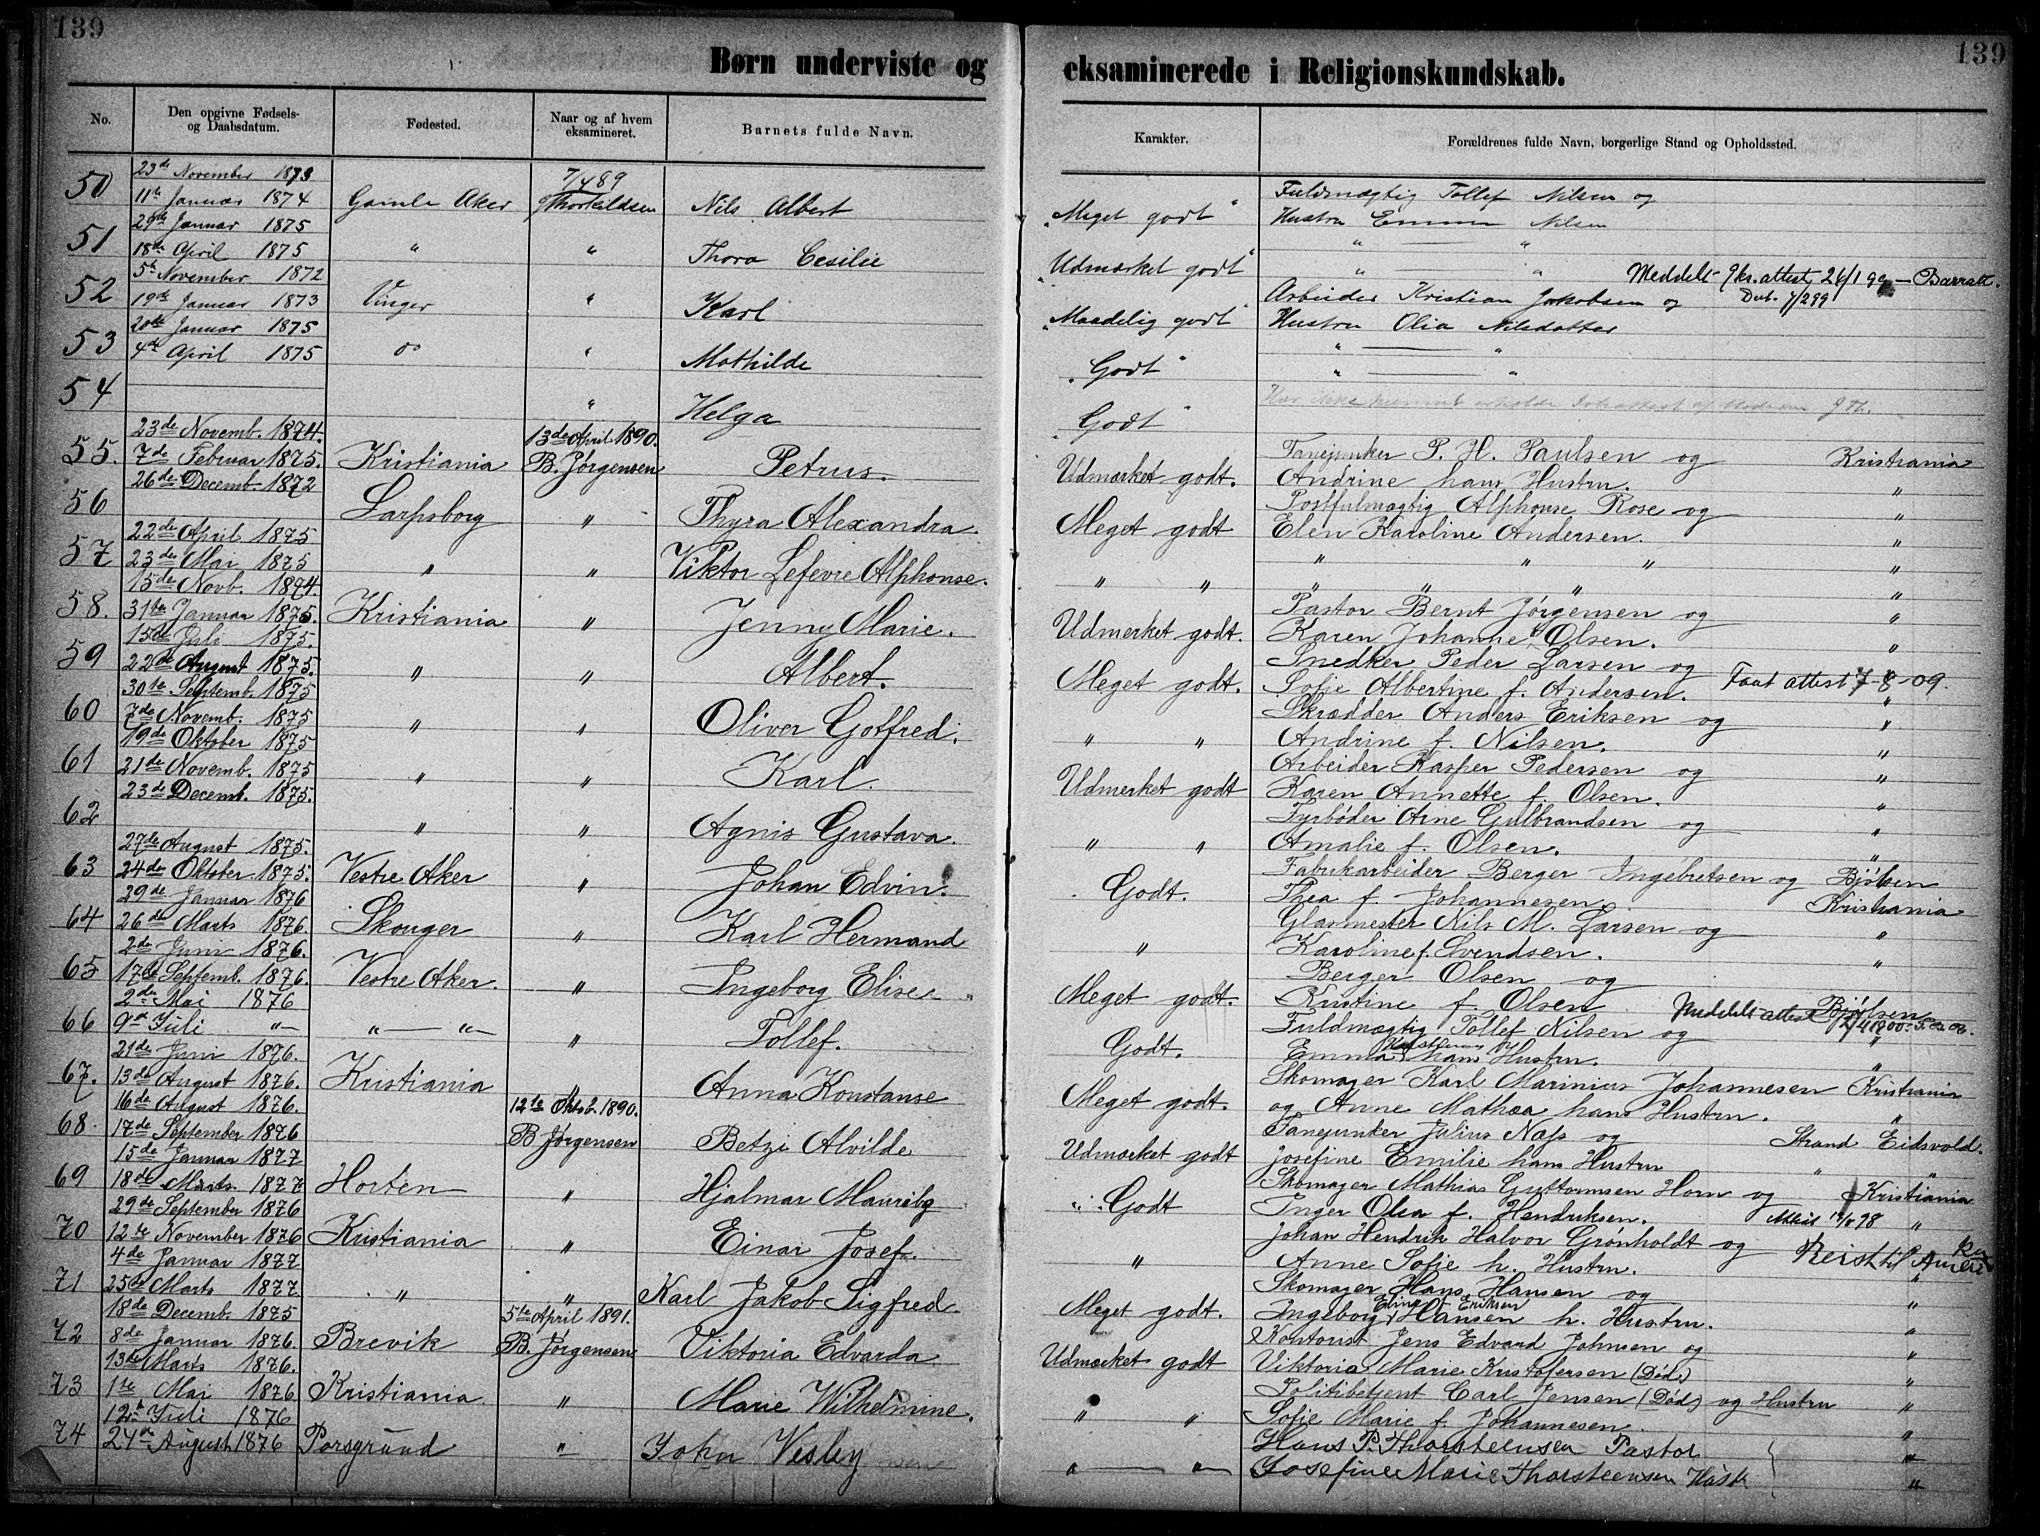 139
Børn underviste og
No.
Den opgivne Fødsels- og Daabsdatum.
Fødested.
Naar og af hvem eksamineret.
Barnets fulde Navn.
23de November 1873
7/4 89
50 11te Januar 1874 Gamle Aker Thorkildsen Nils Albert
29de Januar 1875
51 18de April 1875 " " Thora Cecilie
5te November 1872
52 19de Januar 1873 Vinger " Karl
20de Januar 1875
53 4de April 1875 do " Mathilde
54 " Helga
23de Novemb. 1874. 13de April 1890.
55. 7de Februar 1875. Kristiania B. Jørgensen Petrus.
26de Decemb. 1872
56 Sarpsborg " Thyra Alexandra
22de April 1875
57 23de Mai 1875 " " Viktor Lefevre Alphonse.
15de Novb. 1874.
58. 31te Januar 1875. Kristiania " Jenny Marie.
15de Juli 1875.
59 22de August 1875. " " Albert.
30te Septemb. 1875
60 7de Novemb. 1875 " " Oliver Gotfred.
19de Oktober 1875
61 21de Novemb. 1875 " " Karl.
23de Decemb. 1875.
62 " " Agnis Gustava.
27de August 1875.
63 24de Oktober 1875. Vestre Aker " Johan Edvin.
29de Januar 1876
64 26de Marts 1876. Skouger " Karl Hermand
2de Juni 1876.
65 17de Septemb. 1876. Vestre Aker. " Ingeborg Elise
2de Mai 1876
66 9de Juli "— "—"— " Tollef.
21de Juni 1876.
67. 13de August 1876. Kristiania " Anna Konstanse
16de August 1876. 12te Oktb. 1890.
68. 17de September 1876 B Jørgensen Betzi Alvilde
15de Januar 1877
69 18de Marts 1877 Horten " Hjalmar Mauritz
29de September 1876
70 12te November 1876 Kristiania " Einar Josef.
4de Januar 1877
71 25de Marts 1877 " " Karl Jakob Sigfred
18de Decemb. 1875 5te April 1891.
72 8de Januar 1876. Brevik B. Jørgensen Viktoria Edvarda
13te Marts 1876.
73 1te Mai 1876 Kristiania " Marie Wilhelmine.
12te Juli 1876
74 27de August 1876 Porsgrund " John Vesley
139
eksaminerede i Religionskundskab.
Karakter.
Forældrenes fulde Navn, borgerlige Stand og Opholdssted.
Fuldmægtig Tollef Nilsen og
"Meget godt" Hustru Emma Nilsen
" — "
"Udmærket godt" " — " Meddelt attest 26/1 99 — Barratt.
Arbeider Kristian Jakobsen og Dub. 7/2 99
"Maadelig godt" Hustru Olia Nilsdatter
" — "
"Godt" " — "
"Godt"
P. H. Paulsen og Kristiania
Udmærket godt. Andrine hans Hustru. "
Postfulmægtig Alphonse Rose og "
Meget godt Elen Karoline Andersen. "
" " " "
" " " " " "
Pastor Bernt Jørgensen og "
Udmerket godt. Karen Johanne Olsen. "
Snedker Peder Larsen og
Meget godt. Sofie Albertine f. Andersen. Faat attest 7-8-09.
Skrædder Anders Eriksen og "
" " Andrine f. Nilsen. "
Arbeider Kasper Pedersen og "
Udmerket godt Karen Annette f. Olsen. "
Fyrbøder Arne Gulbrandsen og "
" " Amalie f. Olsen. "
Fabrikarbeider Berger Ingebretsen og Bjølsen
Godt. Thea f. Johannesen Kristiania
Glasmester Nils M. Larsen og "
" Karoline f. Svendsen. "
Berger Olsen og
Meget godt. Kristine f. Olsen Bjølsen
Fuldmægtig Tollef Nilsen og Meddelt attest "
Godt. Emma hans Hustru. "
Skomager Karl Marinius Johannesen Kristiania
Meget godt. og Anne Mathea hans Hustru. "
Julius Næss og Strand Eidsvold.
Udmærket godt Josefine Emilie hans Hustru " "
Skomager Mathias Guttormsen Horn og Kristiania
Godt Inger Olea f. Hendriksen. "
Johan Hendrik Halvor Grønholdt og Reist til Amerika
" Anne Sofie h. Hustru. "
Skomager Hans Hansen og
Meget godt. Ingeborg Eline Hansen f. Eriksen h. Hustru. "
Kontorist Jens Edvard Johnsen og "
Udmærket godt Viktoria Marie Kristofersen (Død.) "
Politibetjent Carl Jensen (Død) og Hustru "
" " Sofie Marie f. Johannesen. "
Hans P. Thorsteensen Pastor "
" — " Josefine Marie Thorsteensen "